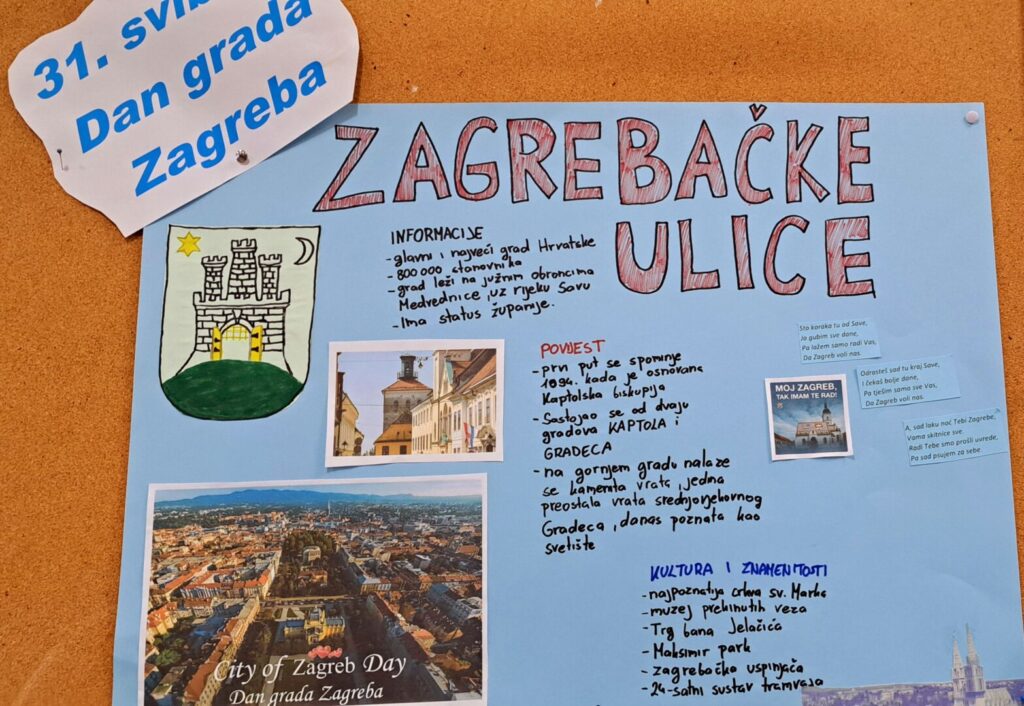 31. svib
Dan grada
Zagreba
ZAGREBAČKE
ULICE
INFORMACIJE
- glavni i najveći grad Hrvatske
- 800 000 stanovnika
- grad leži na južnim obroncima
Medvednice, uz rijeku Savu
- Ima status županije.
POVIJEST
- prvi put se spominje
1094. kada je osnovana
Kaptolska biskupija
- Sastojao se od dvaju
gradova KAPTOLA i
GRADECA
- na gornjem gradu nalaze
se kamenita vrata, jedina
preostala vrata srednjovjekovnog
Gradeca, danas poznata kao
svetište
Sto koraka tu od Save,
Ja gubim sve dane,
Pa lažem samo radi Vas,
Da Zagreb voli nas.
Odrasteš sad tu kraj Save,
I čekaš bolje dane,
Pa tješim samo sve Vas,
Da Zagreb voli nas.
A, sad laku noć Tebi Zagrebe,
Vama skitnice sve.
Radi Tebe smo prošli uvrede,
Pa sad psujem za sebe.
MOJ ZAGREB,
TAK IMAM TE RAD!
KULTURA I ZNAMENITOSTI
- najpoznatija crkva sv. Marka
- muzej prekinutih veza
- Trg bana Jelačića
- Maksimir park
- zagrebačka uspinjača
- 24-satni sustav tramvaja
City of Zagreb Day
Dan grada Zagreba